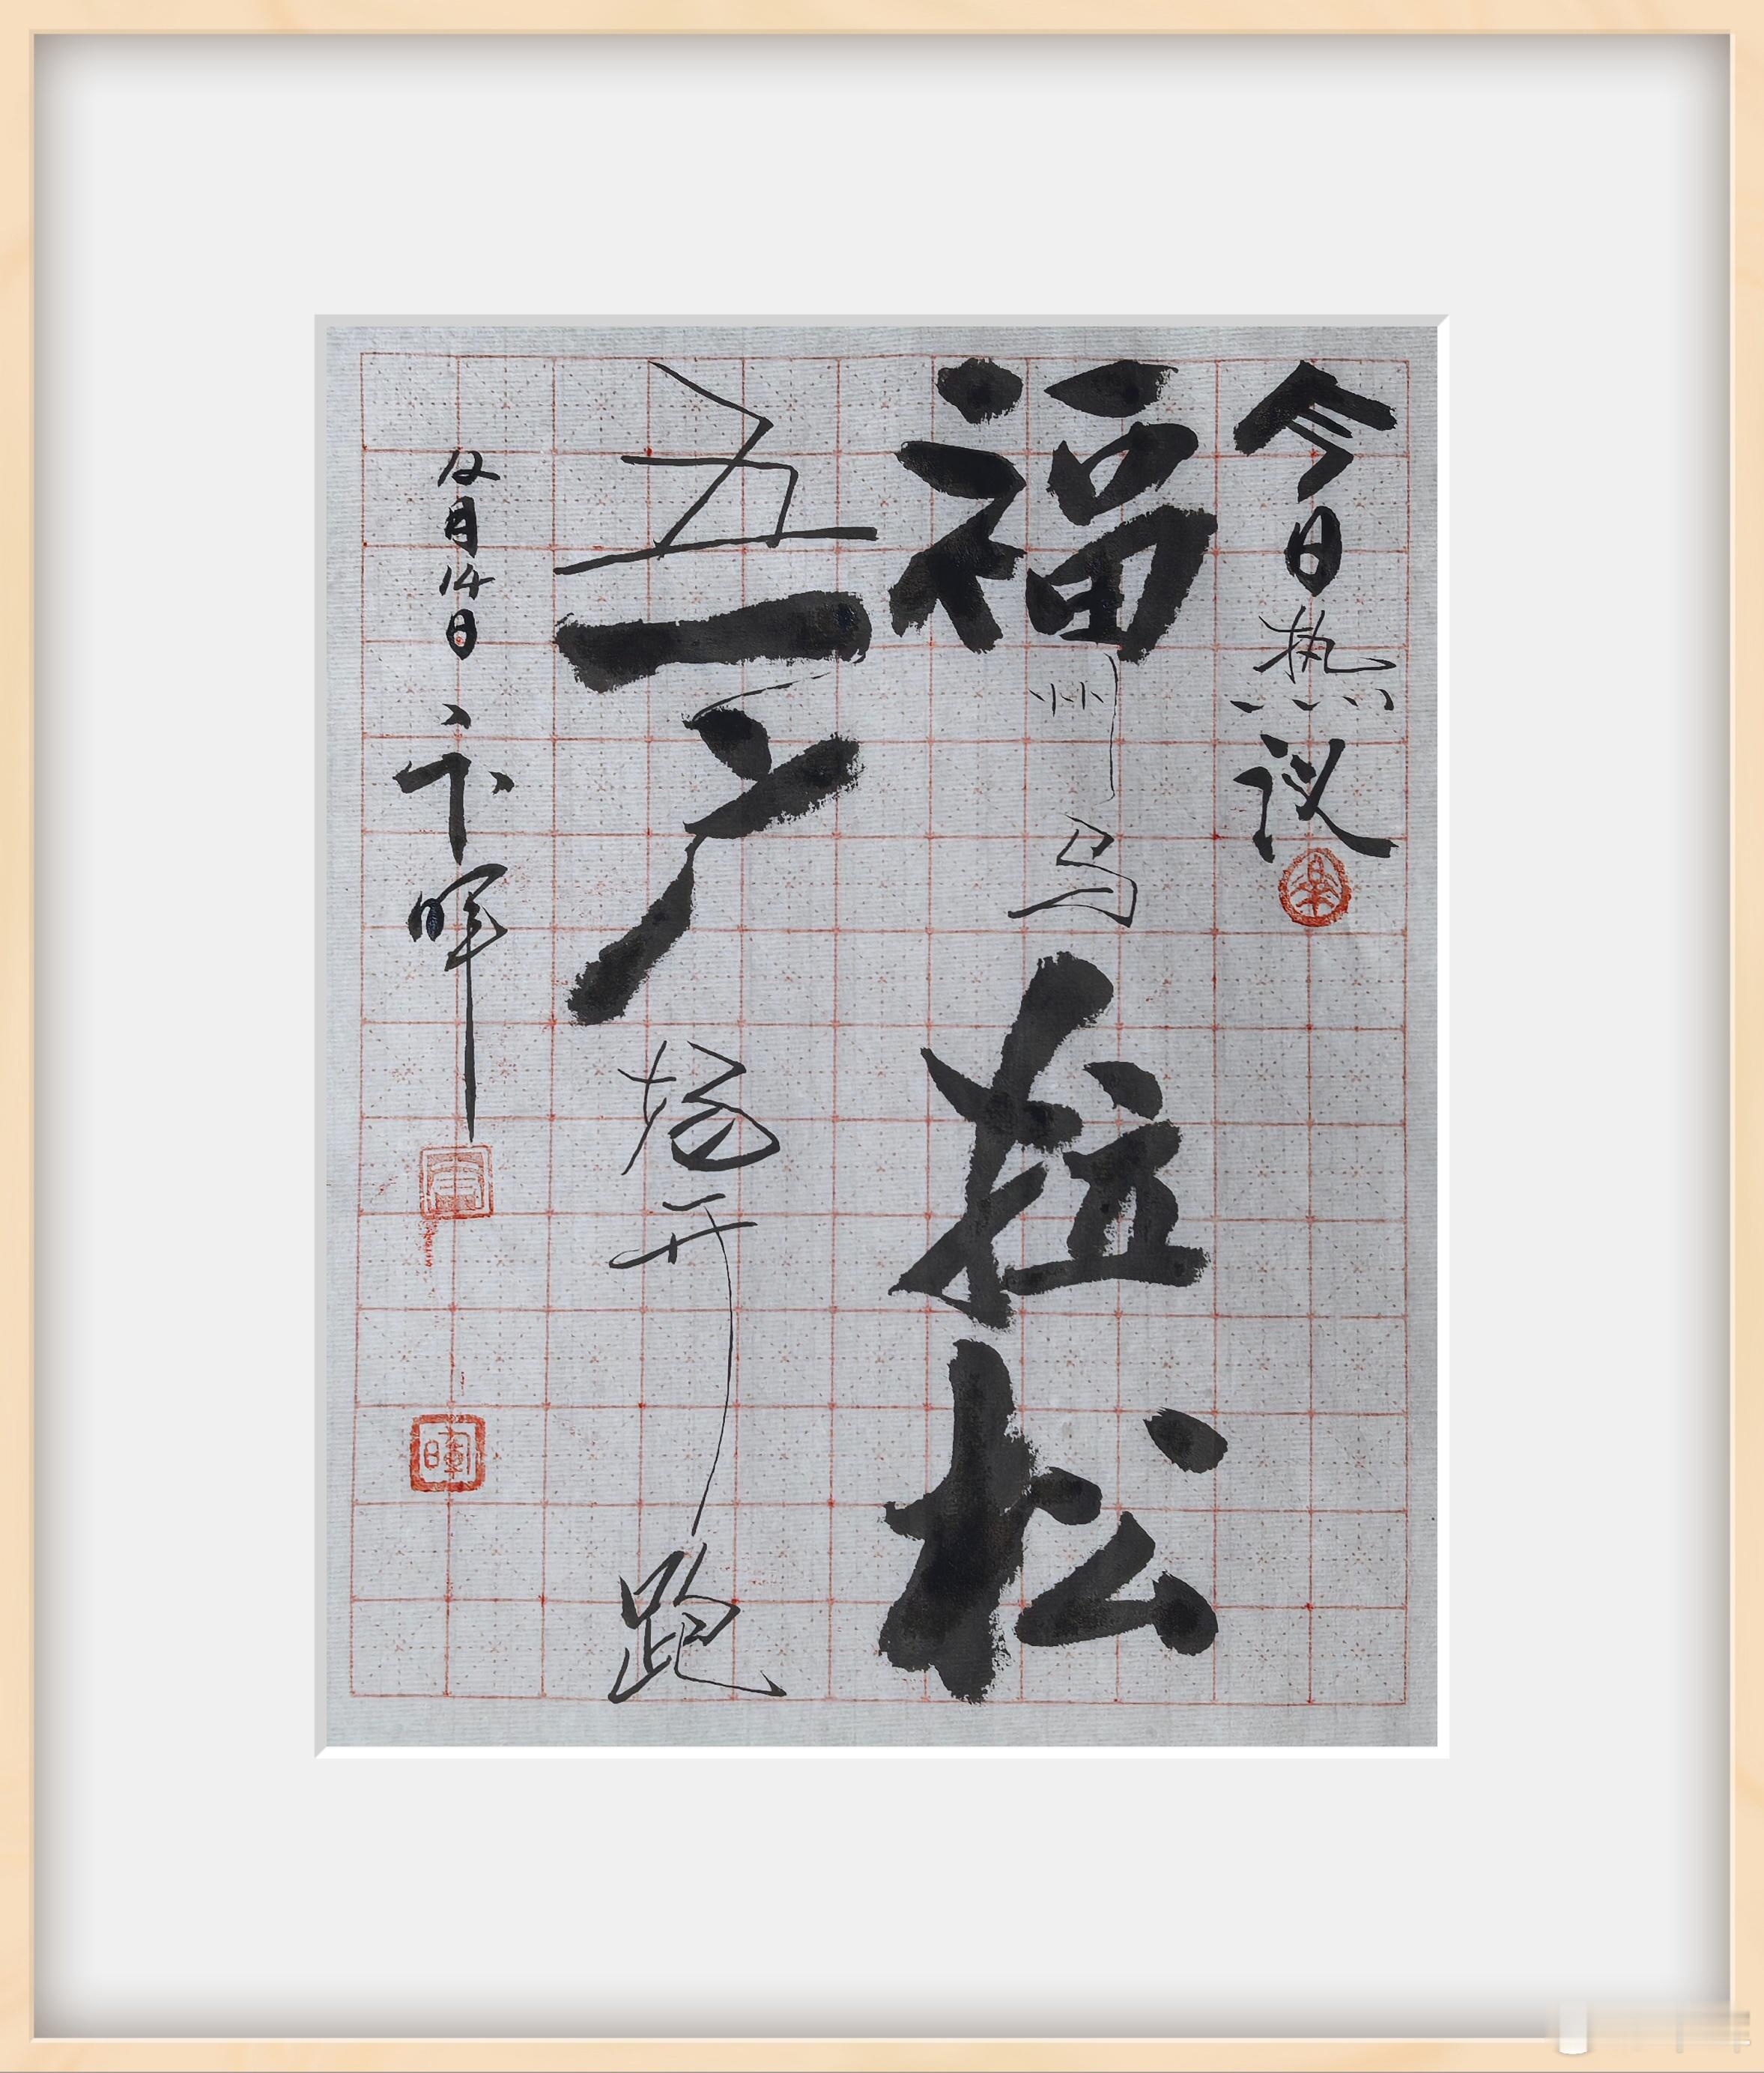 今日热议
福州马拉松
五一广场开跑
12月14日 卞晖
暉